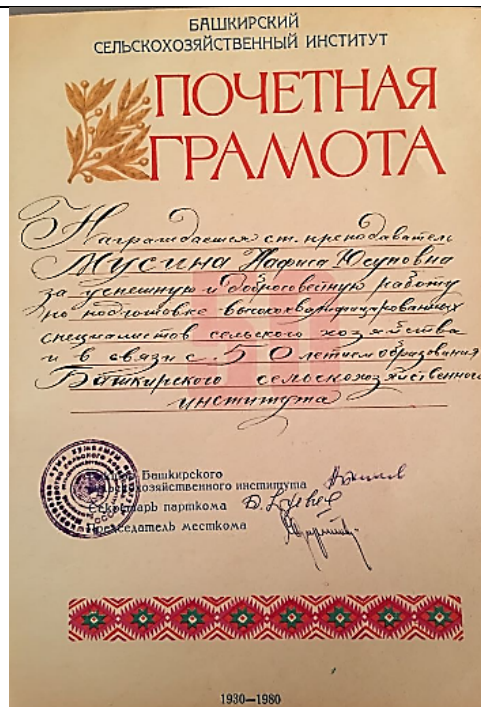 БАШКИРСКИЙ
СЕЛЬСКОХОЗЯЙСТВЕННЫЙ ИНСТИТУТ
ПОЧЕТНАЯ
ГРАМОТА
Награждается ст. преподаватель
Мусина Нафиса Юсуповна
за успешную и добросовестную работу
по подготовке высококвалифицированных
специалистов сельского хозяйства
и в связи с 50 летием образования
Башкирского сельскохозяйственного
института
50
Башкирского
сельскохозяйственного института
Секретарь парткома
Председатель месткома
1930—1980